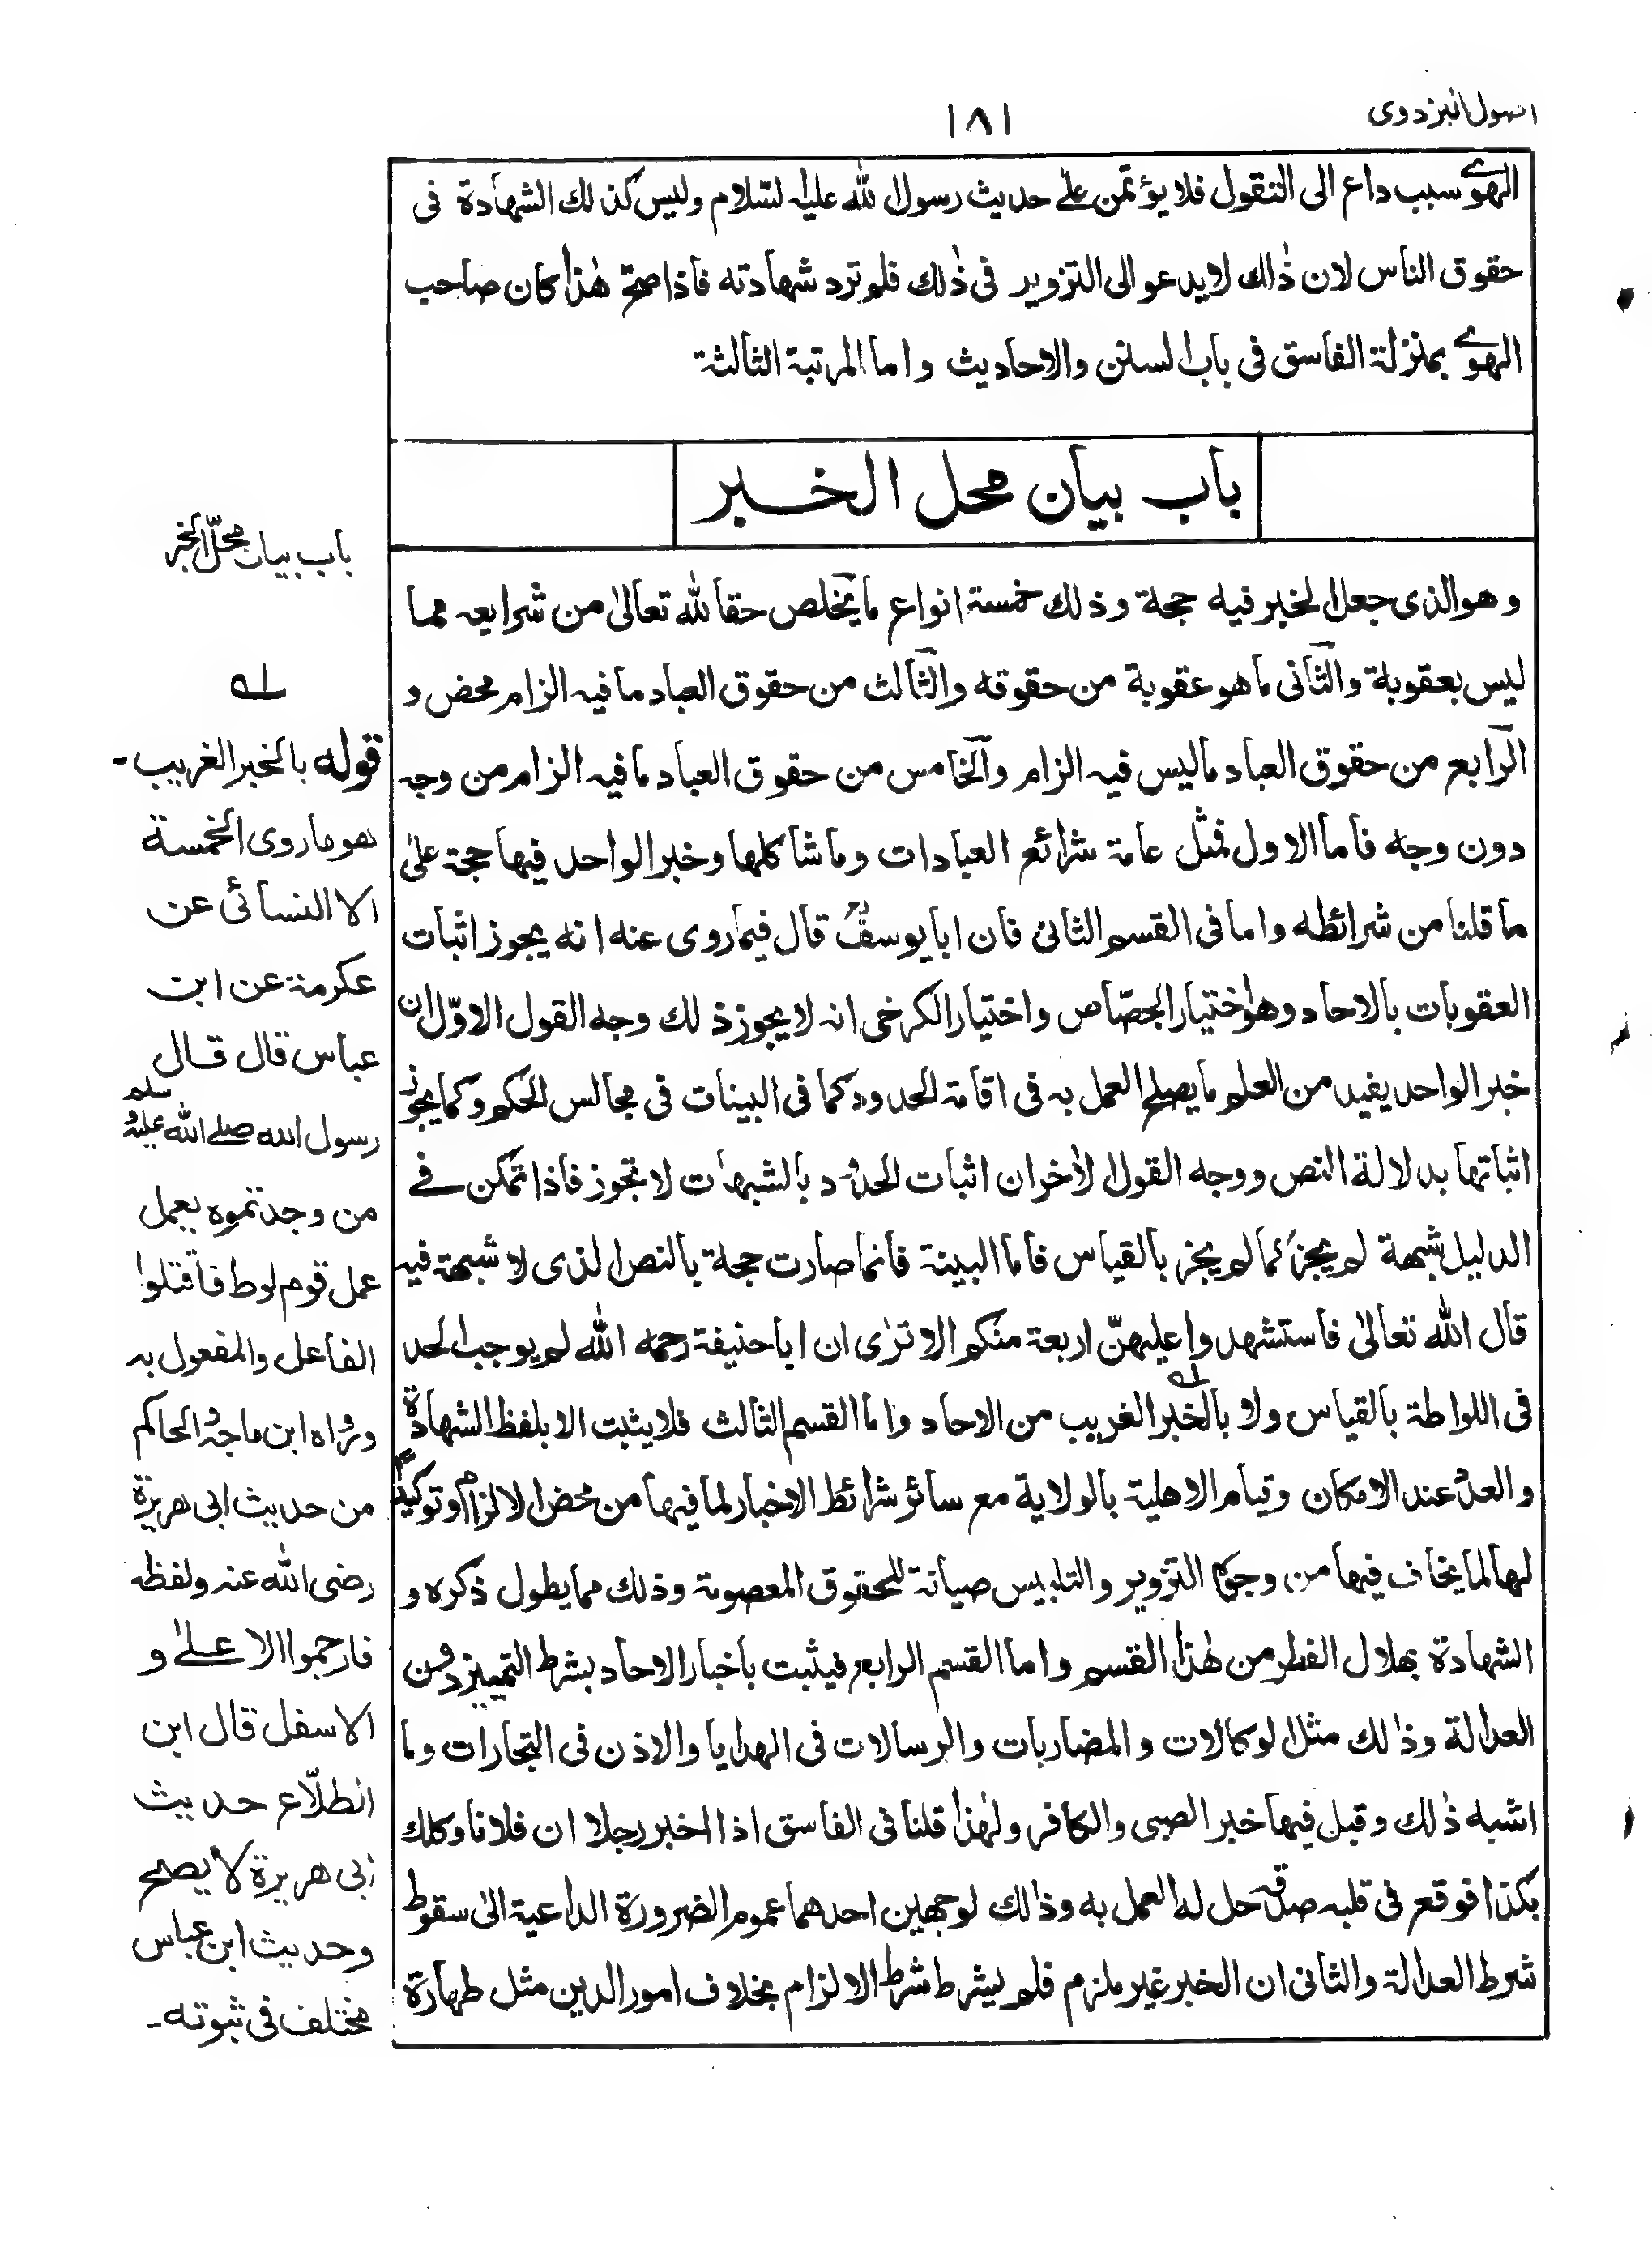 اصول البزدوى
١٨١
الهوى سبب داع الى التقول فلا يؤتمن على حديث رسول الله عليه السلام وليس كذلك الشهادة فى
حقوق الناس لان ذلك لا يدعو الى التزوير فى ذلك فلم ترد شهادته فاذا صح هذا كان صاحب
الهوى بمنزلة الفاسق فى باب السنن والاحاديث واما المرتبة الثالثة
باب بيان محل الخبر
وهو الذى جعل الخبر فيه حجة وذلك خمسة انواع ما يخلص حقا لله تعالى من شرايعه مما
ليس بعقوبة والثانى ما هو عقوبة من حقوقه والثالث من حقوق العباد ما فيه الزام محض و
الرابع من حقوق العباد ما ليس فيه الزام والخامس من حقوق العباد ما فيه الزام من وجه
دون وجه فاما الاول فمثل عامة شرائع العبادات وما شاكلها وخبر الواحد فيها حجة على
ما قلنا من شرائطه واما فى القسم الثانى فان ابا يوسفؒ قال فيما روى عنه انه يجوز اثبات
العقوبات بالاحاد وهو اختيار الجصّاص واختيار الكرخى انه لا يجوز ذلك وجه القول الاوّل ان
خبر الواحد يفيد من العلم ما يصلح العمل به فى اقامة الحدود كما فى البينات فى مجالس الحكم وكما يجوز
اثباتها بدلالة النص ووجه القول الأخر ان اثبات الحدود بالشبهات لا تجوز فاذا تمكن فے
الدليل شبهة لم يجز كما لم يجز بالقياس فاما البينة فانما صارت حجة بالنص الذى لا شبهة فيه
قال الله تعالى فاستشهدوا عليهنّ اربعة منكم الا ترى ان ابا حنيفة رحمه الله لم يوجب الحد
فى اللواطة بالقياس ولا بالخبر الغريب من الاحاد واما القسم الثالث فلا يثبت الا بلفظ الشهادة
والعدد عند الامكان وقيام الاهلية بالولاية مع سائر شرائط الاخبار لما فيها من محض الالزام وتوكيدًا
لها لما يخاف فيها من وجوه التزوير والتلبيس صيانة للحقوق المعصومة وذلك مما يطول ذكره و
الشهادة بهلال الفطر من هذا القسم واما القسم الرابع فيثبت باخبار الاحاد بشرط التمييز دون
العدالة وذلك مثل الوكالات والمضاربات والرسالات فى الهدايا والاذن فى التجارات وما
اشبه ذلك وقبل فيها خبر الصبى والكافر ولهذا قلنا فى الفاسق اذا اخبر رجلا ان فلانا وكلك
بكذا فوقع فى قلبه صدقه حل له العمل به وذلك لوجهين احدهما عموم الضرورة الداعية الى سقوط
شرط العدالة والثانى ان الخبر غير ملزم فلم يشرط شرط الالزام بخلاف امور الدين مثل طهارة
باب بيان محلّ الخبر
لـه
قوله بالخبر الغريب-
هو ما روى الخمسة
الا النسائى عن
عكرمة عن ابن
عباس قال قال
رسول الله صلے الله عليه وسلم
من وجدتموه يعمل
عمل قوم لوط فاقتلوا
الفاعل والمفعول به
ورواه ابن ماجة والحاكم
من حديث ابى هريرة
رضى الله عنه ولفظه
فارجموا الاعلى و
الاسفل قال ابن
الطلّاع حديث
ابى هريرة لا يصح
وحديث ابن عباس
مختلف فى ثبوته-